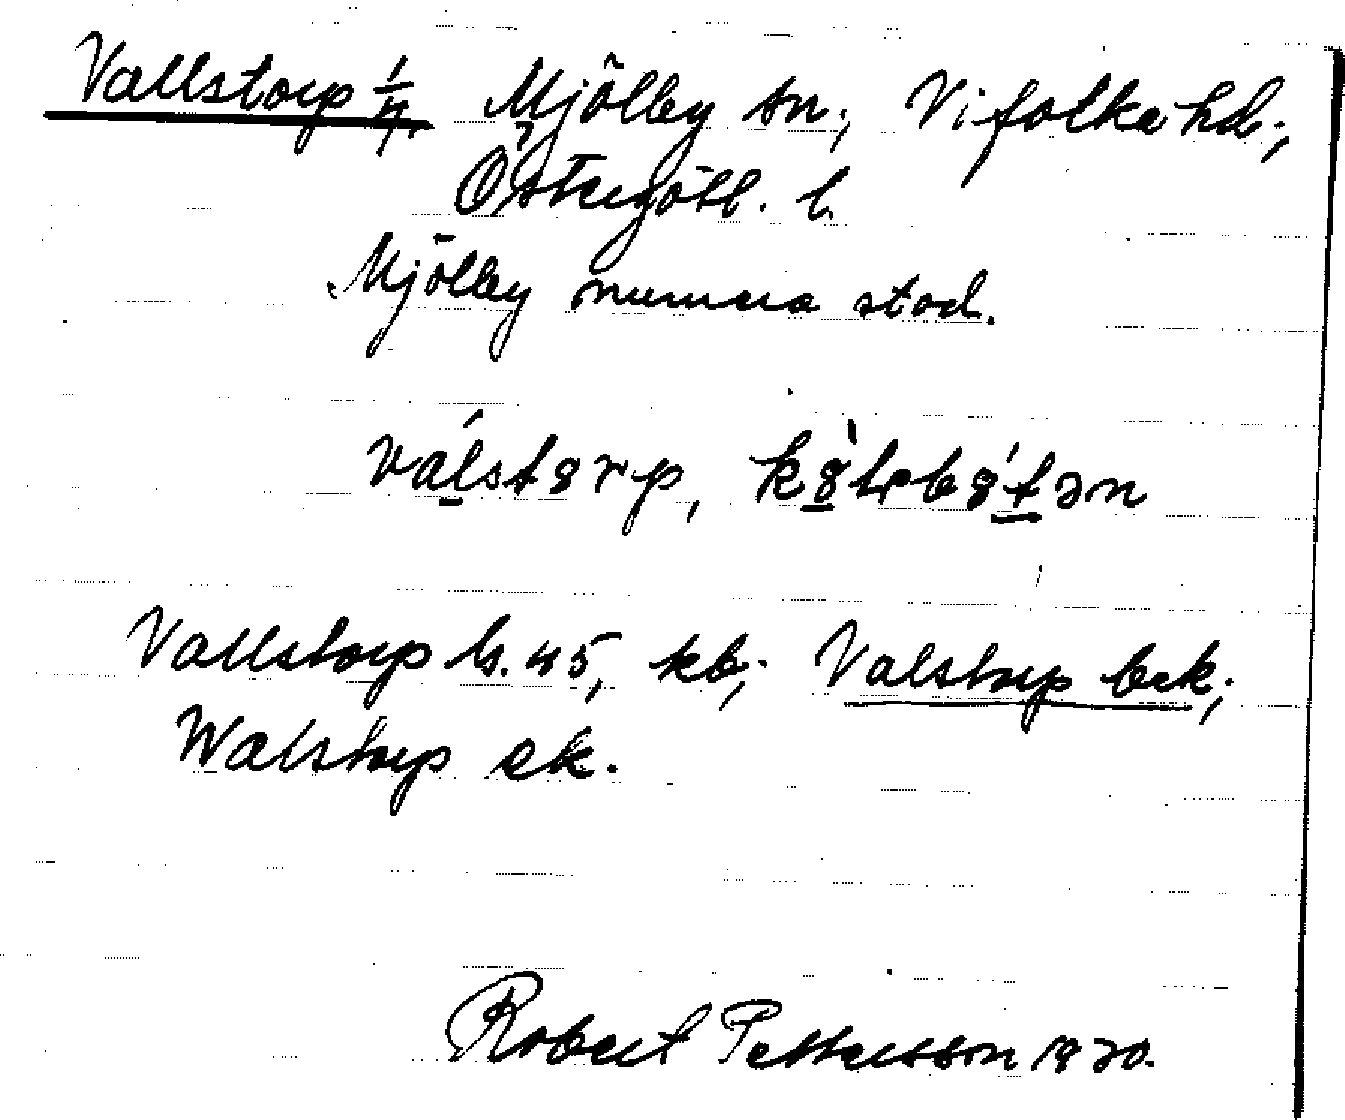 Vallstorp 1/4. Mjölby sn; Vifolka hd;
Östergötl. l.
Mjölby numera stad.
válstərp,
Vallstorp ls. 45, kb; Valstorp bek;
Walstorp ek.
Robert Pettersson 1920.